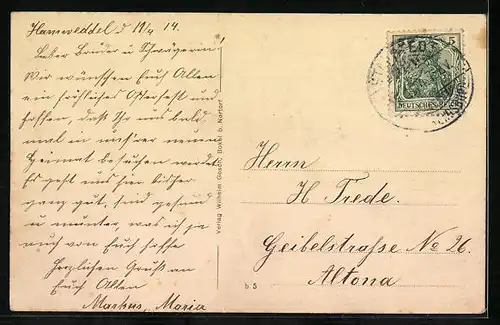 Hamweddel d 10/4 14.
Lieber Bruder u Schwägerin!
Wir wünschen Euch Allen
ein fröhliches Osterfest und
hoffen, daß Ihr uns bald
mal in uns'rer neuen
Heimat besuchen werdet
Es geht uns hier bisher
ganz gut, sind gesund
u munter, was ich ja
auch von Euch hoffe
Herzlichen Gruß an
Euch Allen
Markus, Maria
Verlag Wilhelm Gosch, Bokhl b. Nortorf
b 5
5
DEUTSCHES
Herrn
H Trede.
Geibelstraße No 26.
Altona